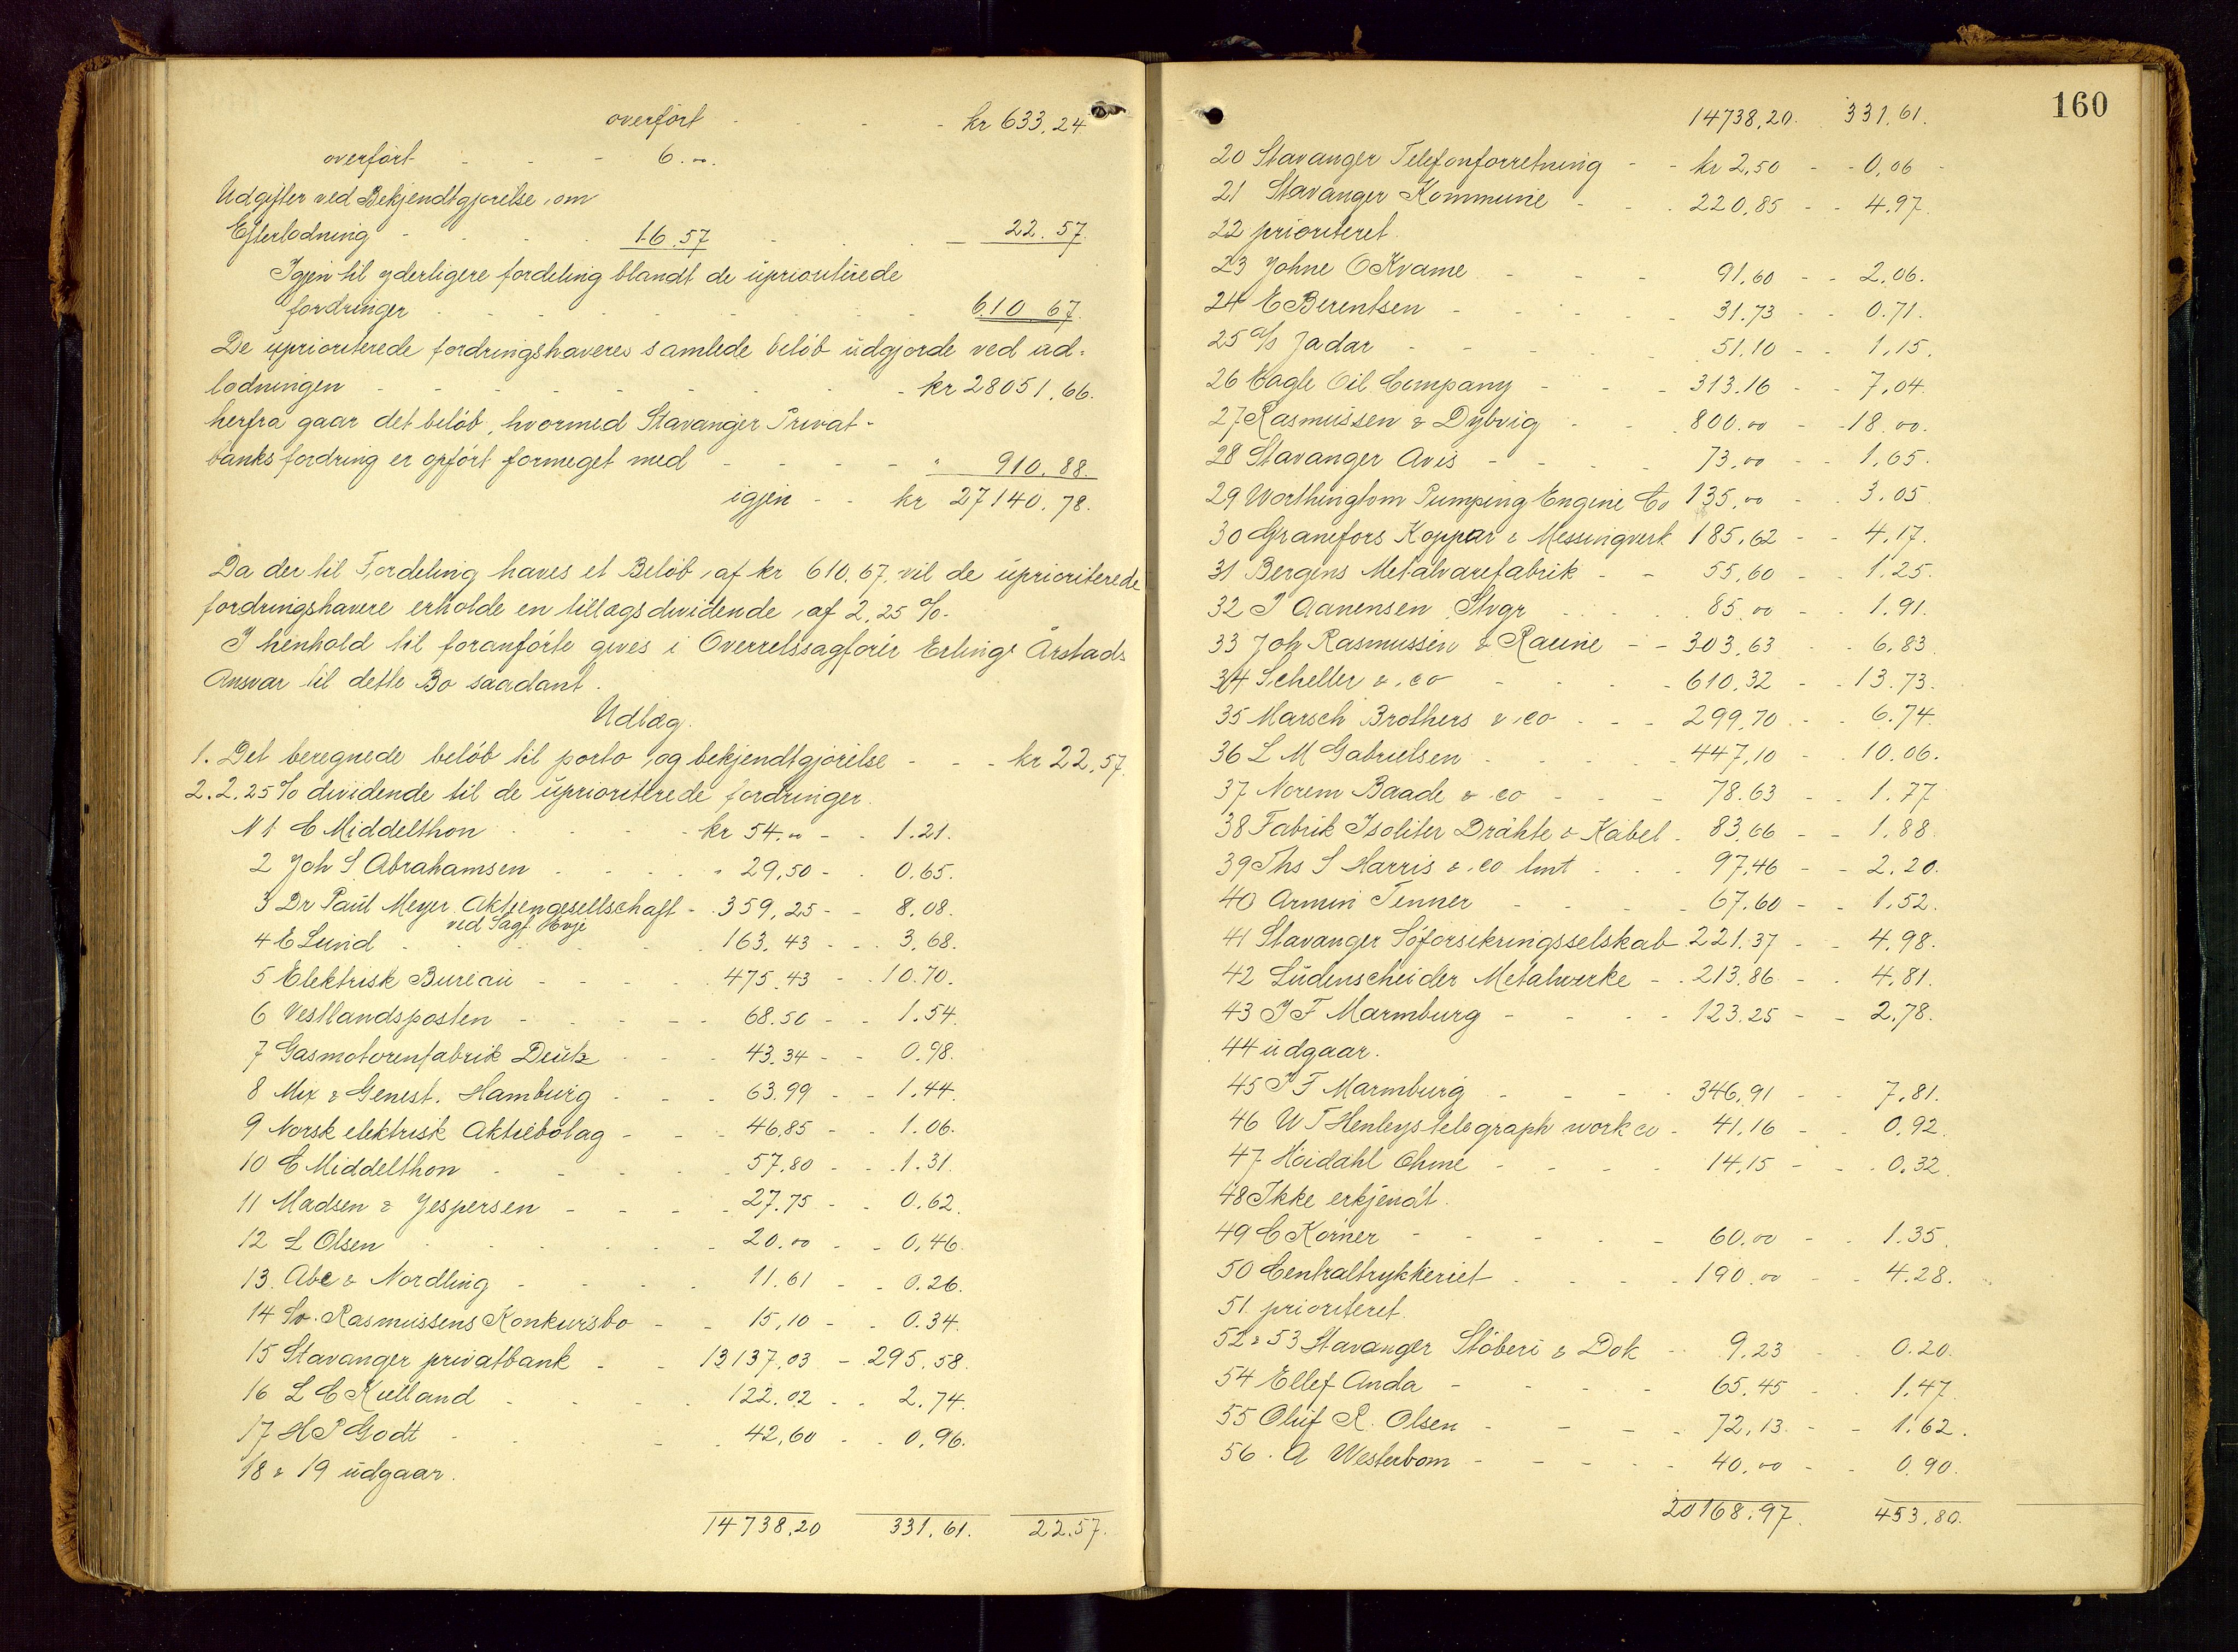 overført - - - kr 633.24
overført - - - 6.00.
Udgifter ved Bekjendtgjørelse om
Efterlodning - - - 16.57 - - - 22.57.
Igjen til yderligere fordeling blandt de uprioriterede
fordringer - - - - - - 610.67.
De uprioriterede fordringshaveres samlede beløb udgjorde ved ud-
lodningen - - - - - - kr 28051.66.
herfra gaar det beløb, hvormed Stavanger Privat-
banks fordring er opført formeget med - - - - " 910.88.
igjen - - kr 27140.78.
Da der til Fordeling haves et Beløb af kr 610.67, vil de uprioriterede
fordringshavere erholde en tillægsdividende af 2,25 %.
I henhold til foranførte gives i Overretssagfører Erling Årstads
Ansvar til dette Bo saadant.
Udlæg.
1. Det beregnede beløb til porto og bekjendtgjørelse - - - kr 22,57.
2. 2.25% dividende til de uprioriterede fordringer.
N 1 C Middelthon - - - kr 54.00 - - 1.21.
2 Joh S. Abrahamsen - - - " 29,50 - - 0.65.
3 Dr Paul Meyer Aktiengesellschaft - 359,25 - - 8.08.
ved Sagf. Hvje
4 E Lund - - - 163.43 - - 3.68.
5 Elektrisk Bureau - - - 475.43 - - 10.70.
6 Vestlandsposten - - - 68.50 - - 1.54.
7 Gasmotorenfabrik Deutz - - - 43.34 - - 0.98.
8 Mix & Genest. Hamburg - - - 63.99 - - 1.44.
9 Norsk elektrisk Aktiebolag - - - 46,85 - - 1.06.
10 C Middelthon - - - 57.80 - - 1.31.
11 Madsen & Jespersen - - - 27.75 - - 0.62.
12 L Olsen - - - 20.00 - - 0,46.
13. Abe & Nordling - - - 11.61 - - 0.26.
14 Sv. Rasmussens Konkursbo - - 15,10 - - 0.34.
15 Stavanger privatbank - - 13137,03 - 295.58.
16 L C Kielland - - - 122.02 - - 2.74.
17 H P Godt - - - 42,60 - - 0,96.
18 & 19 udgaar.
14738,20 331.61. 22.57.
160
14738,20. 331.61.
20 Stavanger Telefonforretning - - kr 2,50 - - 0,06 -
21 Stavanger Kommune - - - 220,85 - - 4.97.
22 prioriteret.
23 Johne O Kvame - - - 91,60 - - 2,06.
24 E Berentsen - - - 31.73 - - 0.71.
25 a/s Jadar - - - 51,10 - - 1,15.
26 Eagle Oil Company - - - 313.16 - - 7,04.
27 Rasmussen & Dybvig - - 800.00 - - 18.00.
28 Stavanger Avis - - - 73.00 - - 1,65.
29 Worthingtom Pumping Engine Co 135,00 - - 3.05.
30 Granefors Koppar & Messingverk 185,62 - - 4.17.
31 Bergens Metalvarefabrik - - 55,60 - - 1,25.
32 J Aanensen Stvgr - - - 85.00 - - 1.91.
33 Joh Rasmussen & Raune - - 303,63 - - 6,83.
34 Scheller & co - - - 610,32 - - 13.73.
35 Marsch Brothers & co - - - 299,70 - - 6.74.
36 L M Gabrielsen - - - 447,10 - - 10.06.
37 Norem Baade & co - - - 78.63 - - 1.77.
38 Fabrik Isoliter Drähte & Kabel - 83,66 - - 1,88.
39 Ths S Harris & co lmt - - - 97,46 - - 2,20.
40 Armin Tenner - - - 67.60 - - 1.52.
41 Stavanger Søforsikringsselskab 221.37 - - 4.98.
42 Lüdenscheider Metalwerke - - 213,86 - - 4,81.
43 J F Marmburg - - - 123.25 - - 2,78.
44 udgaar.
45 J F Marmburg - - - 346,91 - - 7,81.
46 W T Henleys telegraph work co - 41,16 - - 0,92.
47 Høidahl Ohme - - - 14,15 - - 0,32.
48 Ikke erkjendt.
49 C Körner - - - 60.00 - - 1.35.
50 Centraltrykkeriet - - - 190.00 - - 4.28.
51. prioriteret.
52 & 53 Stavanger Støberi & Dok - 9,23 - - 0.20.
54 Ellef Anda - - - 65.45 - - 1.47.
55 Oluf R. Olsen - - - 72,13 - - 1,62.
56. A Westerbom - - - 40,00 - - 0.90.
20168.97. 453.80.